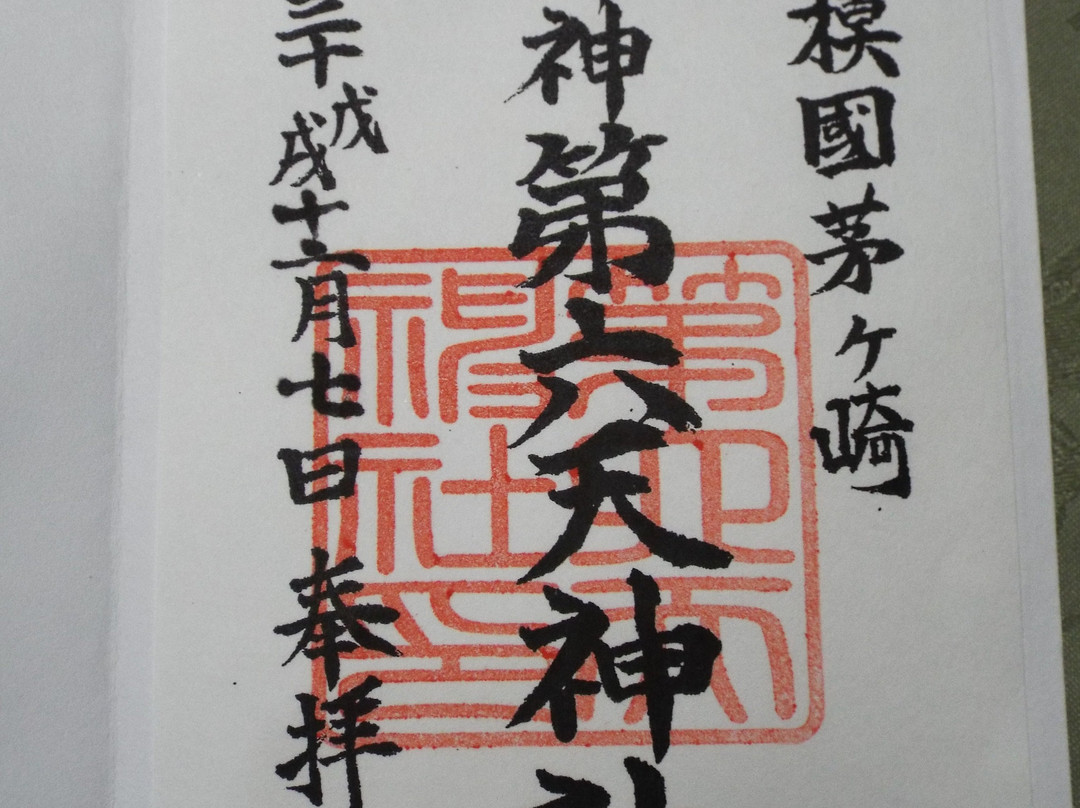 模國茅ヶ崎
神第六天神
三十戊戌十二月七日奉拝
第六天
神社印